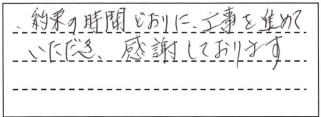 、約束の時間どおりに、工事を進めて
いただき、感謝しております